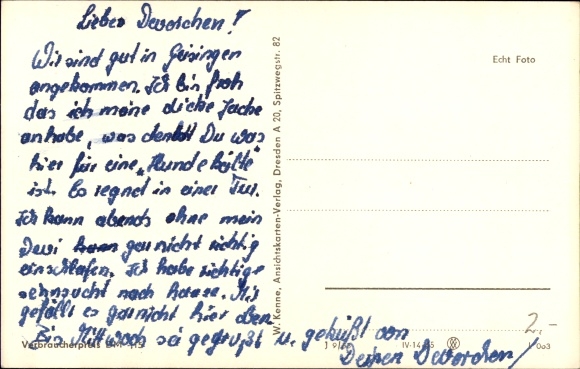 Lieber Deworchen!
Wir sind gut in Geisingen
angekommen. Ich bin froh
das ich meine dicke Jacke
anhabe, was denkst Du was
hier für eine "Hundekälte"
ist. Es regnet in einer Tur.
Ich kann abends ohne mein
Dewi gar nicht richtig
einschlafen. Ich habe richtige
sehnsucht nach hause. Mir
gefällt es gar nicht hier oben.
Bis Mittwoch sei gegrüßt u. geküßt von
Deinen Deworchen!
Echt Foto
W. Kenne, Ansichtskarten-Verlag, Dresden A 20, Spitzwegstr. 82
Verbraucherpreis DM
IV-14-45
2.-